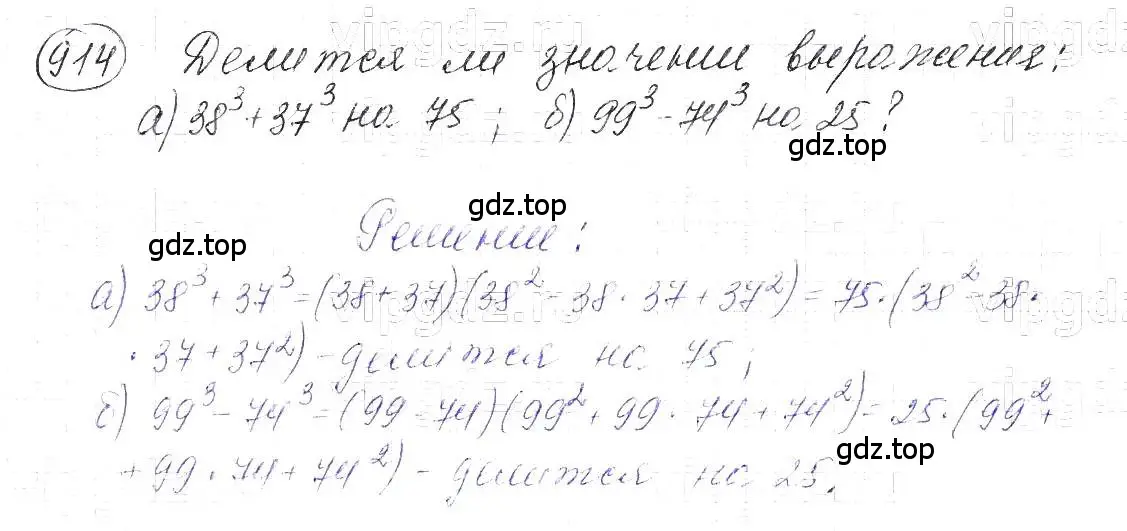 914 Делится ли значении выражения:
а) 38³ + 37³ на 75 ; б) 99³ - 74³ на 25 ?
gdz.top
gdz.top
gdz.top
Решение:
а) 38³ + 37³ = (38 + 37)(38² - 38 · 37 + 37²) = 75 · (38² - 38 ·
· 37 + 37²) - делится на 75 ;
б) 99³ - 74³ = (99 - 74)(99² + 99 · 74 + 74²) = 25 · (99² +
+ 99 · 74 + 74²) - делится на 25.
gdz.top